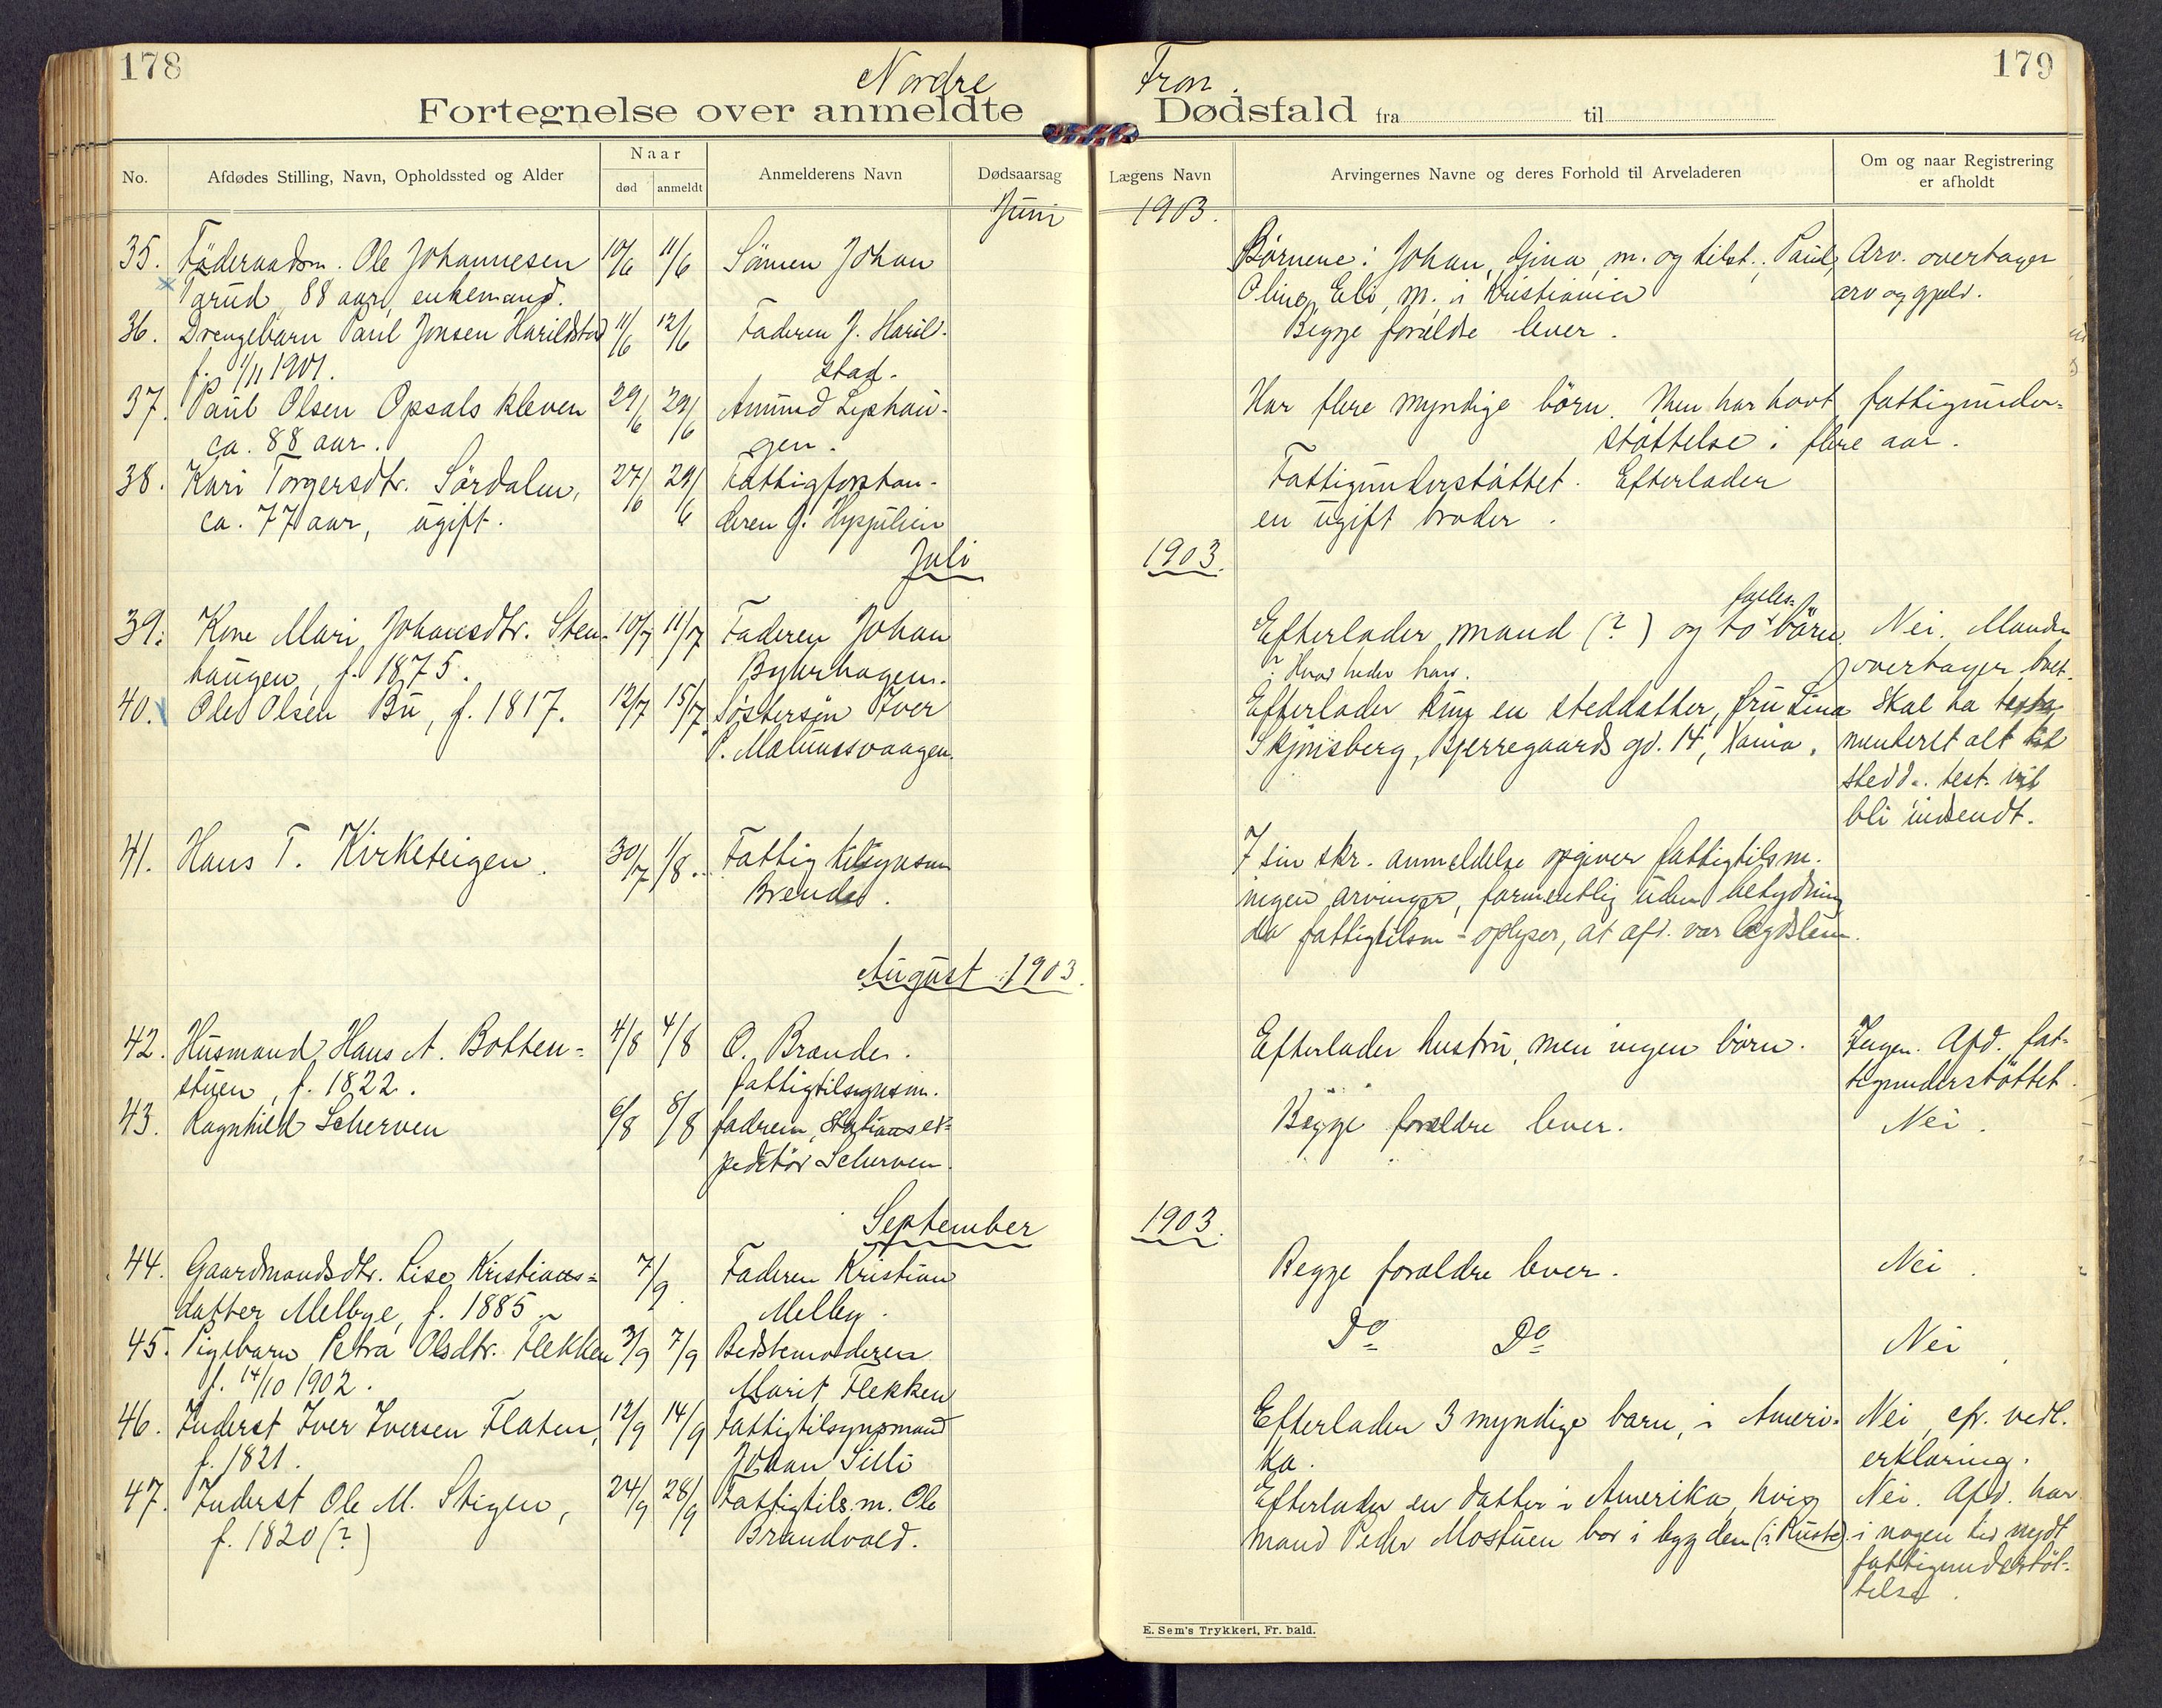 178
Nordre
Fron.
179
Fortegnelse over anmeldte Dødsfald fra til
No.
Afdødes Stilling, Navn, Opholdssted og Alder
Naar
død
anmeldt
Anmelderens Navn
Dødsaarsag
Lægens Navn
Arvingernes Navne og deres Forhold til Arveladeren
Om og naar Registrering
er afholdt
Juni 1903.
35. Föderaadsm. Ole Johannesen 10/6 11/6 Sönnen Johan Börnene: Johan, Gina, m. og tilst., Paul, Arv. overtager
88 aar, enkemand. Oline, Eli, m. i Kristiania arv og gjeld.
36. Drengebarn Paul Jonsen Harildstad 11/6 12/6 Faderen J. Haril- Begge forældre lever.
f. 1/11 1901. stad.
37. Paul Olsen Opsalskleven 29/6 29/6 Amund Lyshau- Har flere myndige börn. Men har havt fattigunder-
ca. 88 aar. gen. støttelse i flere aar.
38. Kari Torgersdtr. Sördalen, 27/6 29/6 Fattigforstan- Fattigunderstøttet. Efterlader
ca. 77 aar, ugift. deren en ugift broder.
Juli 1903.
39. Kone Mari Johansdtr. Sten- 10/7 11/7 Faderen Johan Efterlader mand (?) og to fælles- börn. Nei. Manden
haugen, f. 1875. Byrhagen. ? Hvad heder han. overtager boet.
40. Ole Olsen Bu, f. 1817. 12/7 15/7 Søstersøn Iver Efterlader kun en steddatter, fru Lina Skal ha testa-
P. Skjønsberg, Bjerregaards gd. 14, Kania. menteret alt til
stedd. test. vil
bli indsendt.
41. Hans T. Kirketeigen. 30/7 1/8. Fattigtilsynsm I sin skr. anmeldelse opgiver fattigtilsm.
ingen arvinger, formentlig uden betydning
da fattigtilsm. oplyser, at afd. var lægdslem.
August 1903.
42. Husmand Hans A. Botten- 4/8 4/8 O. Brandv. Efterlader hustru, men ingen börn. Ingen. Afd. fat-
stuen, f. 1822. fattigtilsynsm. tigunderstöttet.
43. Ragnhild Scherven 6/8 8/8 fadren, Stationsex- Begge forældre lever. Nei.
peditör Scherven.
September 1903.
44. Gaardmandsdtr. Lise Kristians- 7/9. Faderen Kristian Begge forældre lever. Nei.
datter Melbye, f. 1885. Melby.
45. Pigebarn Petra Olsdtr. Flekken 3/9 7/9 Bedstemoderen Do Do Nei.
f. 14/10 1902. Marit Flekken
46. Inderst Iver Iversen Flaten, 12/9 14/9 Fattigtilsynsmand Efterlader 3 myndige barn, i Ameri- Nei, cfr. vedl.
f. 1821. Johan Silli ka. erklæring.
47. Inderst Ole M. Stigen, 24/9 28/9 Fattigtils.m. Ole Efterlader en datter i Amerika, hvis Nei. Afd. har
f. 1820 (?) Brandvold. mand Peder Mostuen bor i bygden (i Ruste). i nogen tid nydt
fattigunderstöt-
telse.
E. Sem's Trykkeri, Fr. hald.